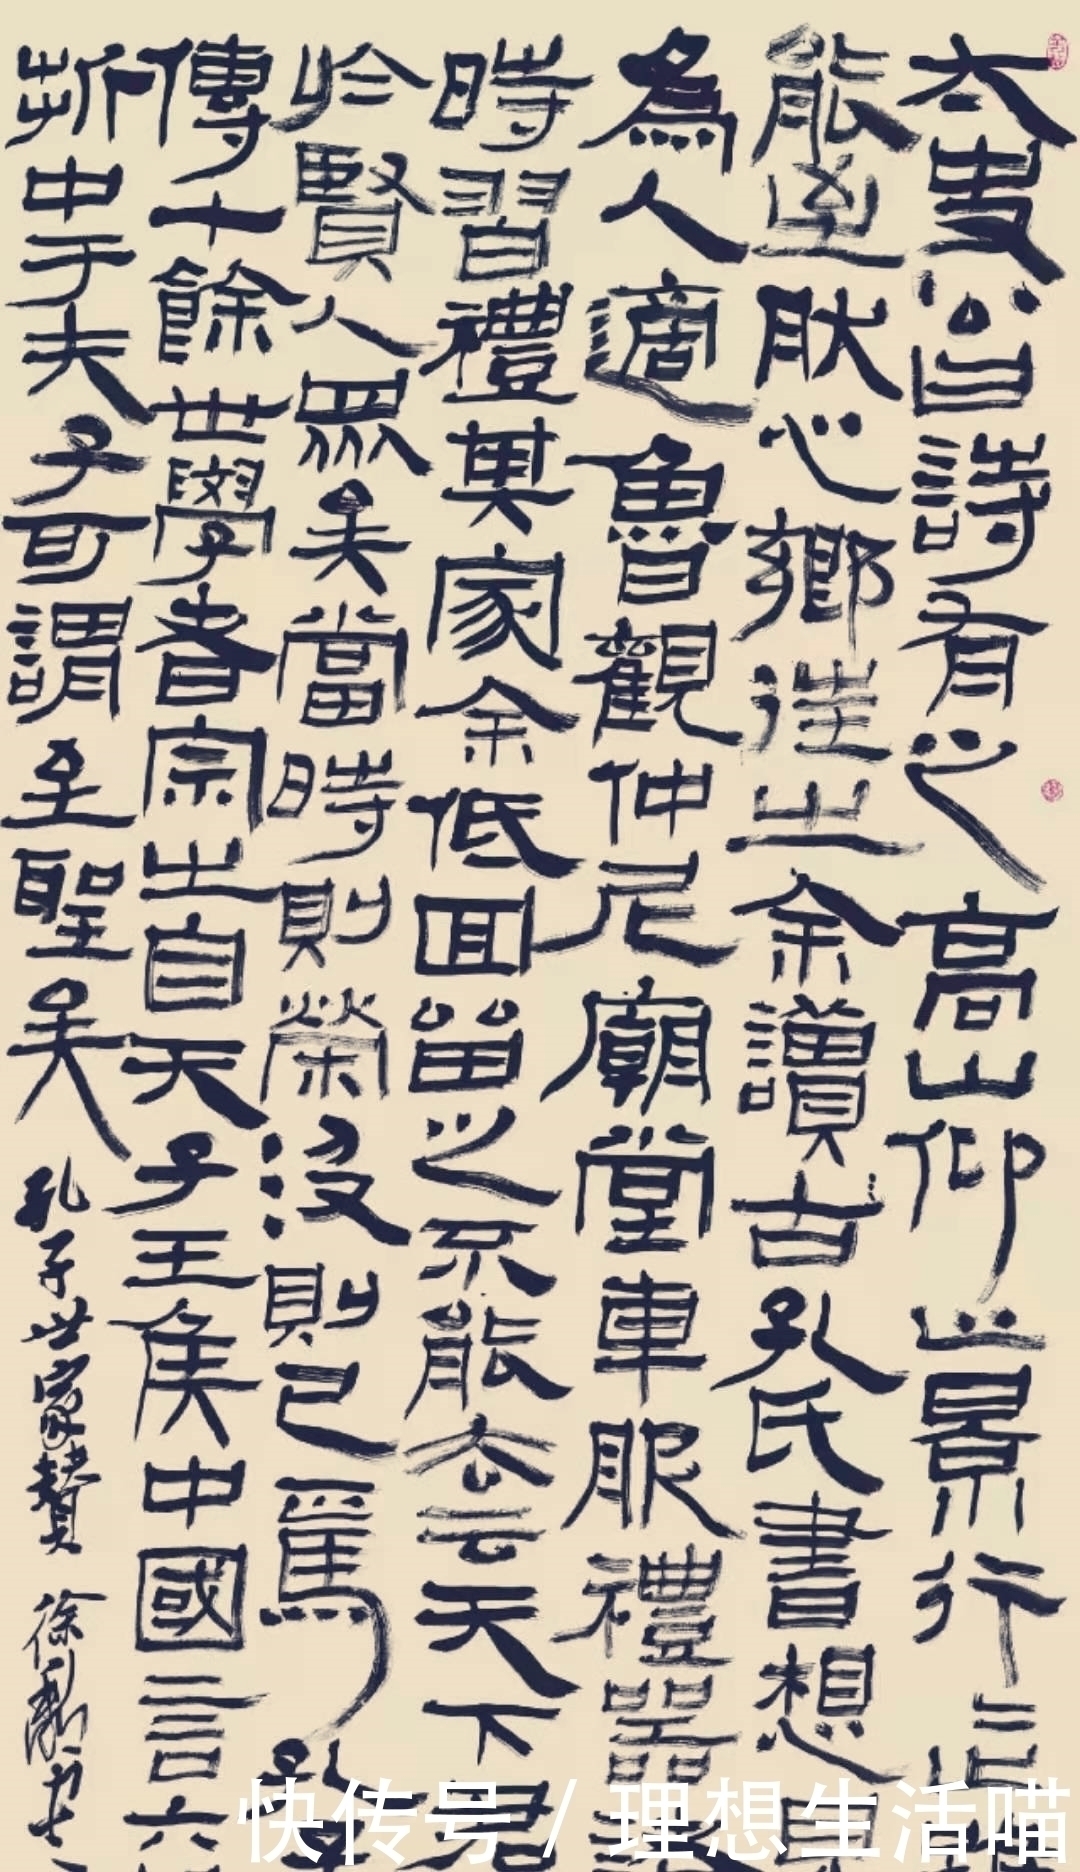 太史公曰詩有之高山仰止景行
能至肰心鄉往之余讀古孔氏書想見
為人適魯觀仲尼廟堂車服禮器
時習禮其家余低回留之不能去云天下君
於賢人眾矣當時則榮沒則已焉孔
傳十餘世學者宗之自天子王侯中國言六
折中于夫子可謂至聖矣
孔子世家贊 徐利
快传号 / 理想生活喵